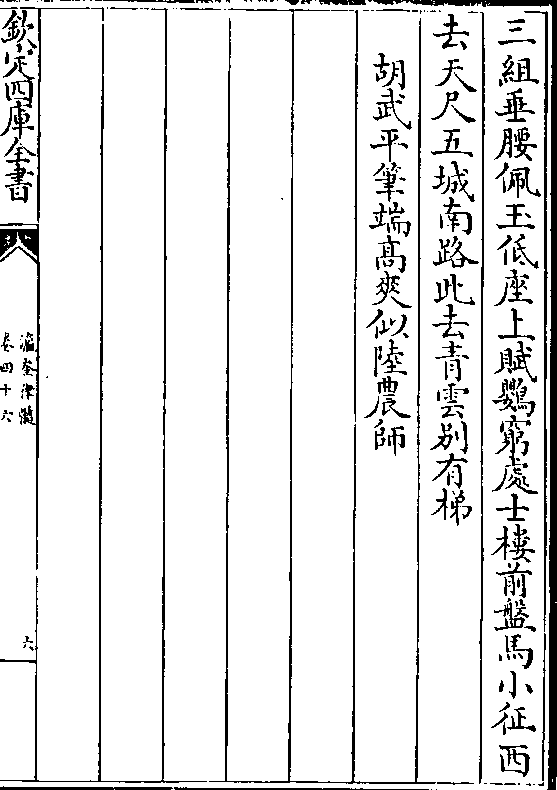 三組垂腰佩玉低座上賦鸚窮處士樓前盤馬小征西
去天尺五城南路此去青雲別有梯
胡武平筆端髙爽似陸農師
欽定四庫全書
瀛奎律髓
卷四十六
六